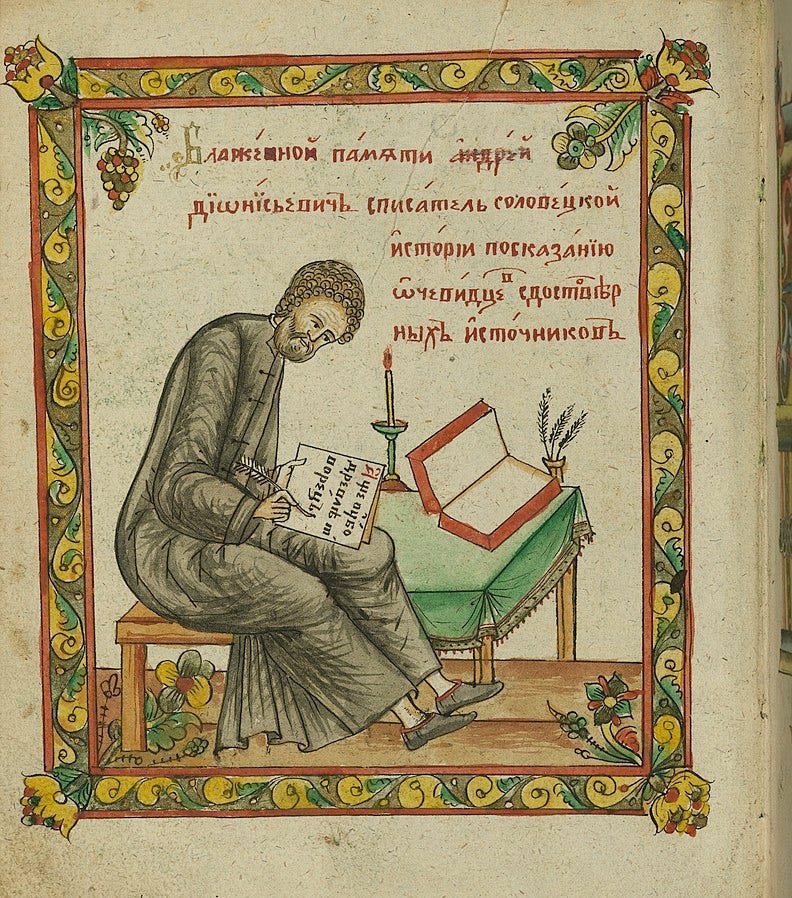 Блаже́нной па́мѧти андре́й
дїѡнї́сьевичъ списа́тель солове́цкой
и҆сто́рїи посказа́нїю
ѡ҆чеви́дцеⷡ сдостовѣ́р
ныхъ и҆сто́чниковъ
А҆́ще ᲂу҆́бо